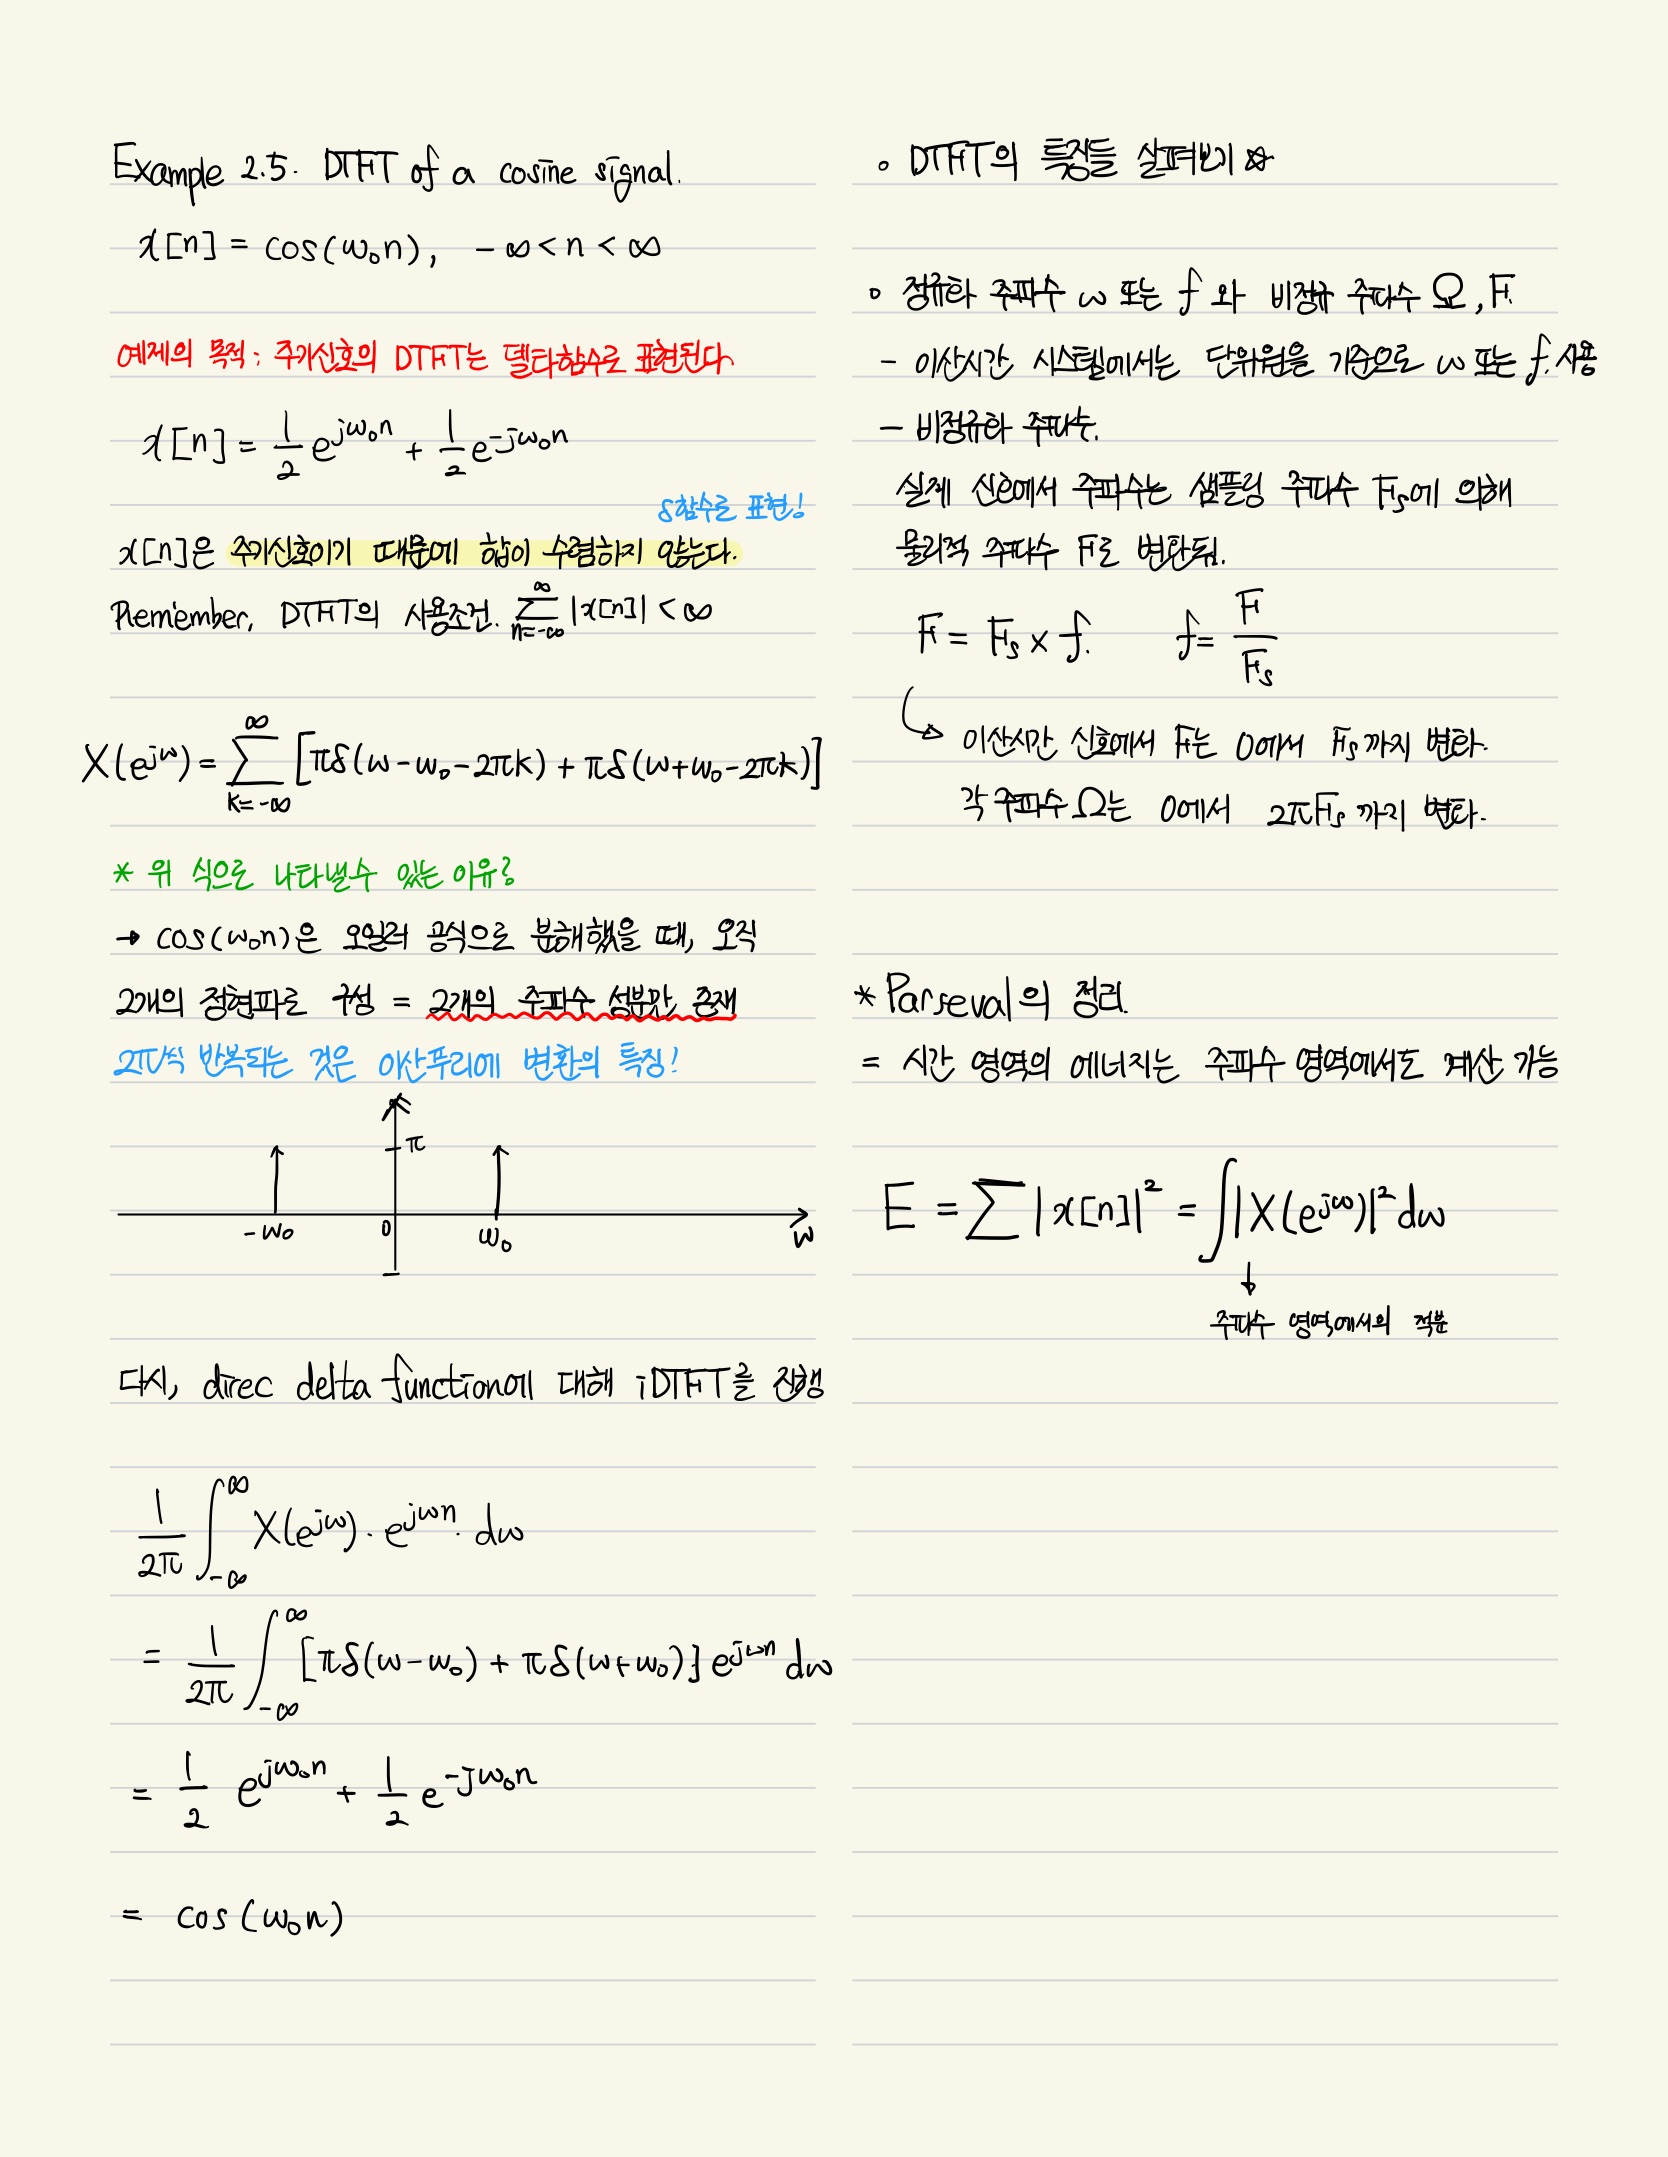 Example 2.5. DTFT of a cosine signal.
x[n] = cos(ω₀n), -∞ < n < ∞
예제의 목적: 주기신호의 DTFT는 델타함수로 표현된다
x[n] = 1/2 e^{jω₀n} + 1/2 e^{-jω₀n}
δ함수로 표현!
x[n]은 주기신호이기 때문에 합이 수렴하지 않는다.
Remember, DTFT의 사용조건. ∑_{n=-∞}^{∞} |x[n]| < ∞
X(e^{jω}) = ∑_{k=-∞}^{∞} [πδ(ω-ω₀-2πk) + πδ(ω+ω₀-2πk)]
* 위 식으로 나타낼수 있는 이유?
→ cos(ω₀n)은 오일러 공식으로 분해했을 때, 오직
2개의 정현파로 구성 = 2개의 주파수 성분만 존재
2π씩 반복되는 것은 이산푸리에 변환의 특징!
π
-ω₀ 0 ω₀ ω
다시, direc delta function에 대해 iDTFT를 진행
1/2π ∫_{-∞}^{∞} X(e^{jω}) · e^{jωn} · dω
= 1/2π ∫_{-∞}^{∞} [πδ(ω-ω₀) + πδ(ω+ω₀)] e^{jωn} dω
= 1/2 e^{jω₀n} + 1/2 e^{-jω₀n}
= cos(ω₀n)
∘ DTFT의 특징들 살펴보기 ☆
∘ 정규화 주파수 ω 또는 f 와 비정규 주파수 Ω, F.
- 이산시간 시스템에서는 단위원을 기준으로 ω 또는 f. 사용
- 비정규화 주파수.
실제 신호에서 주파수는 샘플링 주파수 Fs에 의해
물리적 주파수 F로 변환됨.
F = Fs × f. f = F/Fs
↳ 이산시간 신호에서 F는 0에서 Fs까지 변화.
각 주파수 Ω는 0에서 2πFs까지 변화.
* Parseval의 정리.
= 시간 영역의 에너지는 주파수 영역에서도 계산 가능
E = ∑ |x[n]|² = ∫|X(e^{jω})|² dω
↓
주파수 영역에서의 적분